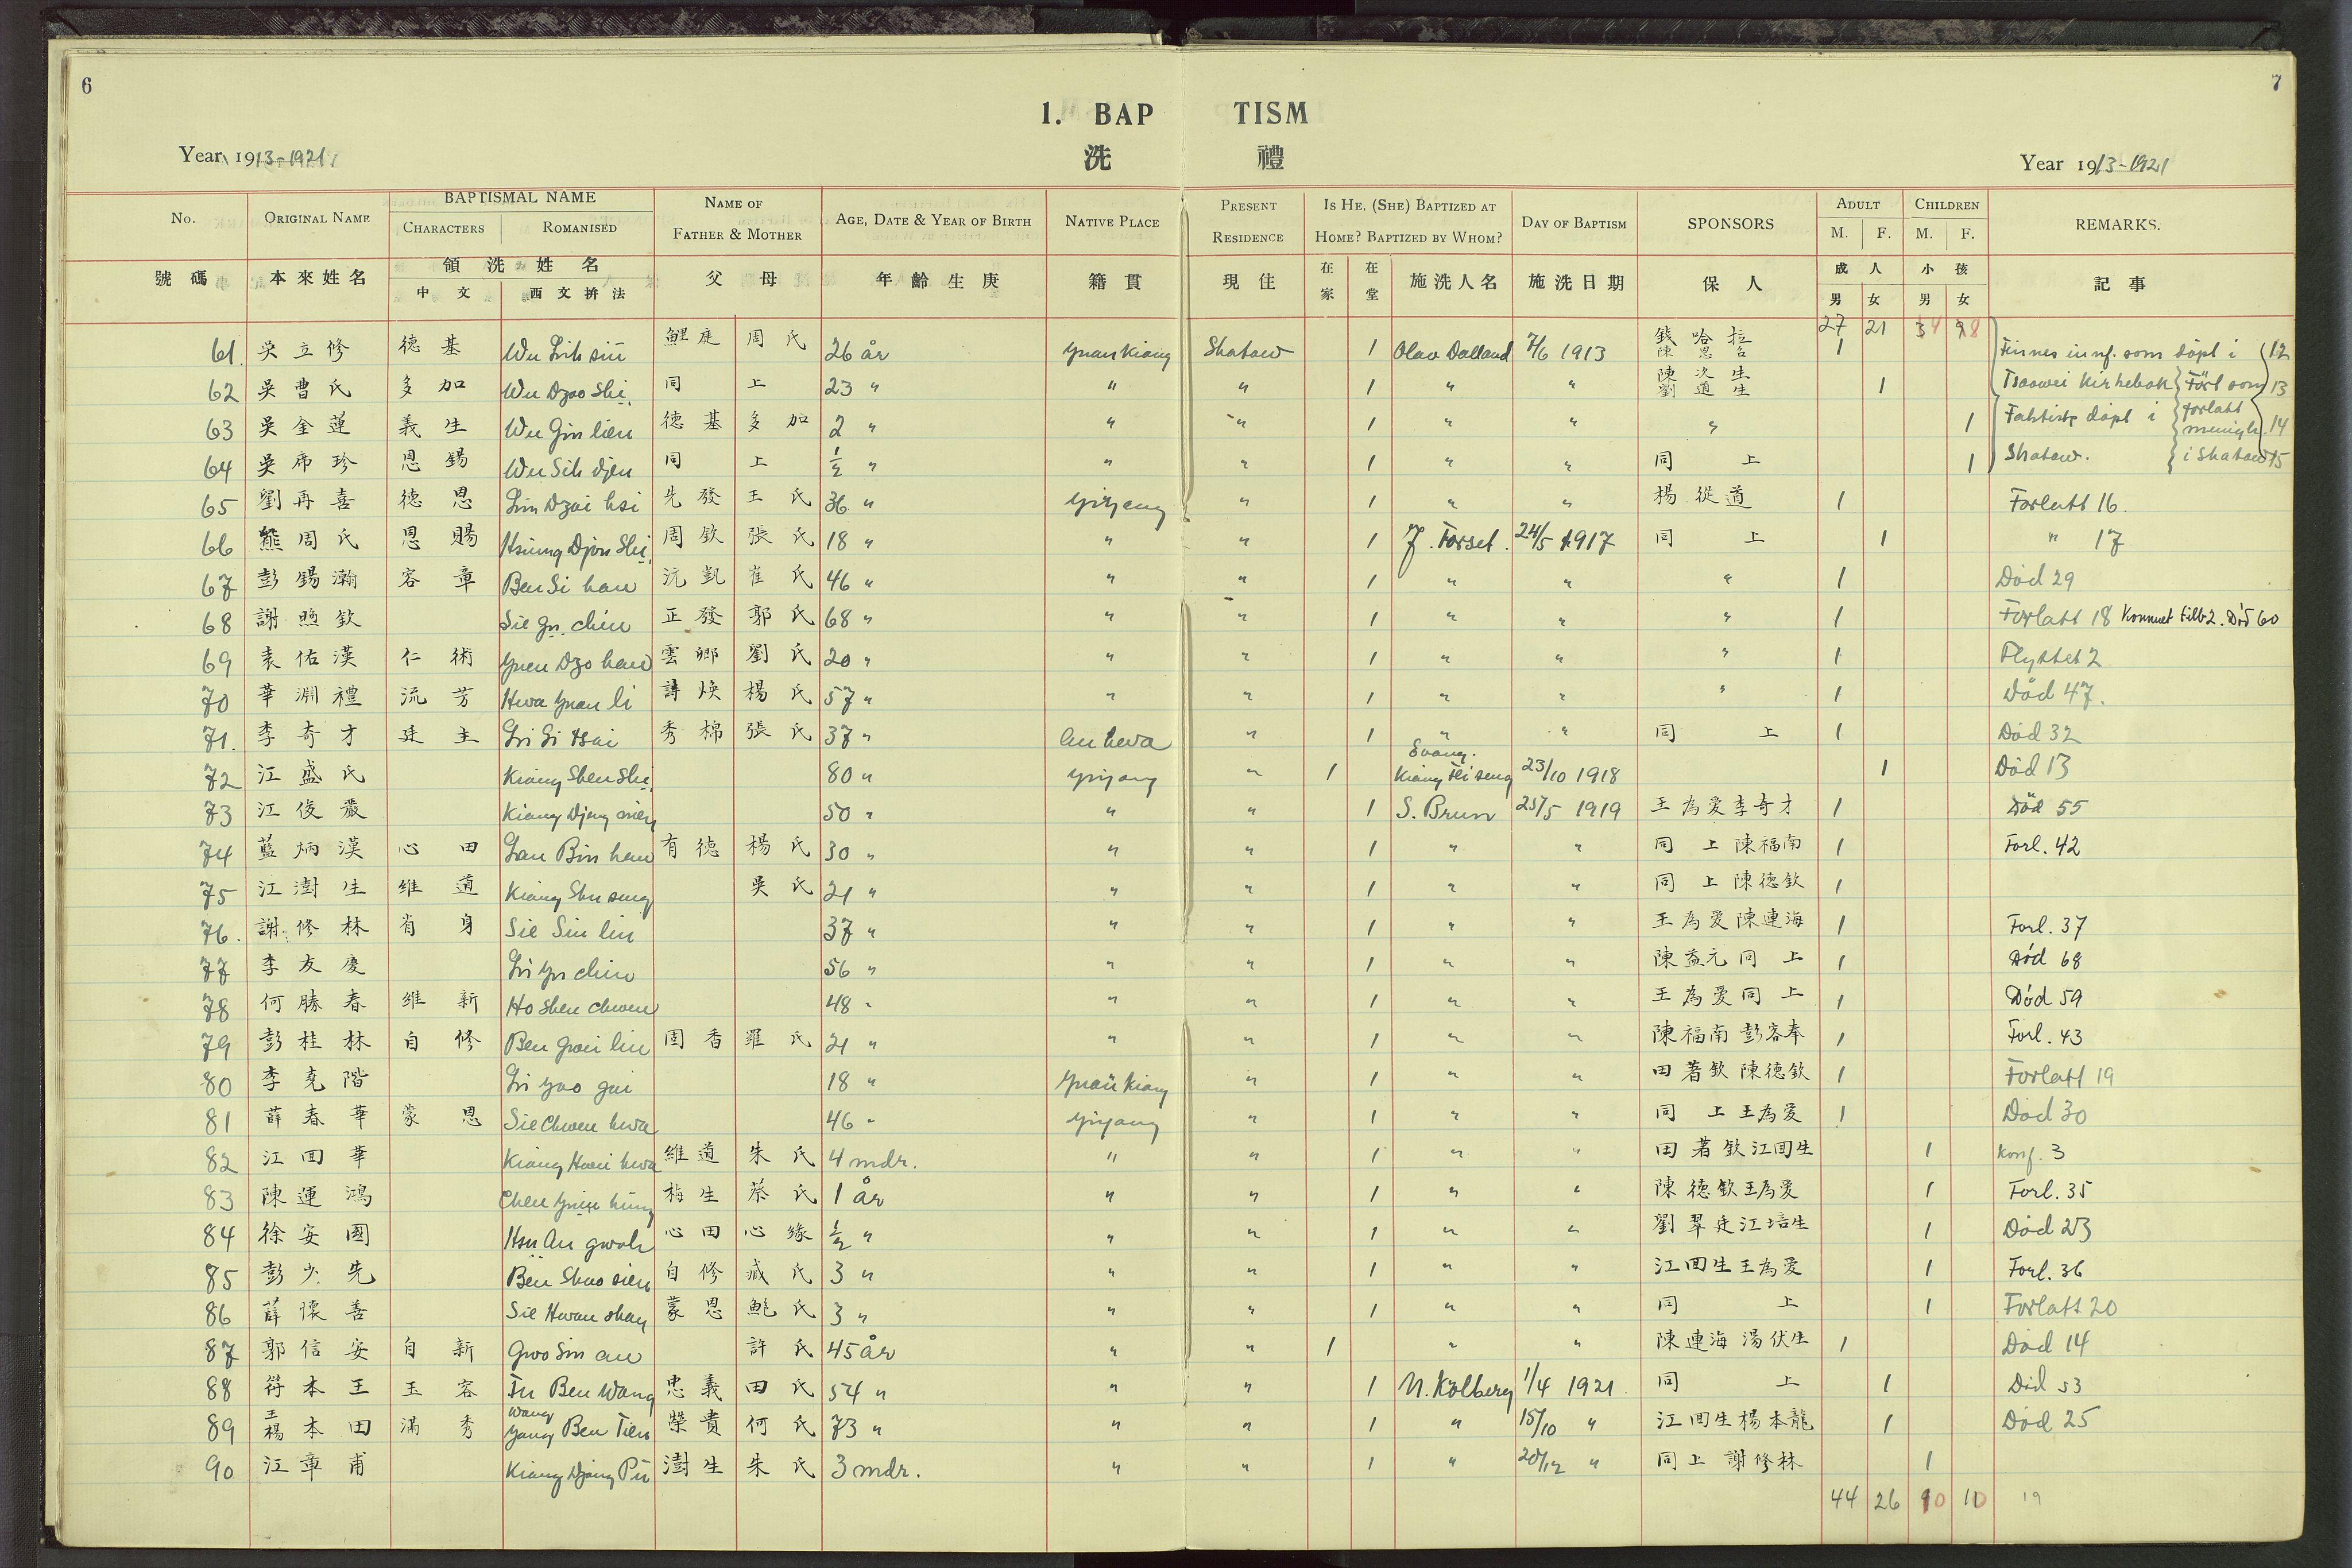 6
7
1. BAPTISM
洗禮
Year 1913-1921
Year 1913-1921
No. ORIGINAL NAME BAPTISMAL NAME CHARACTERS ROMANISED NAME OF FATHER & MOTHER AGE, DATE & YEAR OF BIRTH NATIVE PLACE PRESENT RESIDENCE IS HE. (SHE) BAPTIZED AT HOME? BAPTIZED BY WHOM? DAY OF BAPTISM SPONSORS ADULT M. F. CHILDREN M. F. REMARKS.
號碼 本來姓名 領洗姓名 中文 西文拚法 父母 年齡生庚 籍貫 現住 在家 在堂 施洗人名 施洗日期 保人 成人 男 女 小孩 男 女 記事
27 21
61. 吳立修 德基 Wu Lih siu 鯉庭 周氏 26 år Yuankiang Shatow 1 Olav Dalland 7/6 1913 錢哈拉 陳恩名 1 Finnes innf. som döpt i 12
62 吳曹氏 多加 Wu Dzao Shi 同上 23 " " " 1 " " 陳次生 劉道生 1 Tsaowei kirkebok Förl som 13
63 吳金蓮 義生 Wu Gin lien 德基 多加 2 " " " 1 " " " 1 Faktisk döpt i forlatt menigh. 14
64 吳席珍 恩錫 Wu Sih djen 同上 ½ " " " 1 " " 同上 1 Shatow. i Shatow 15
65 劉再喜 德恩 Liu Dzai hsi 先發 王氏 36 " Yiyang " 1 " " 楊從道 1 Forlatt 16.
66 熊周氏 恩賜 Hsiung Djou Shi 周欽 張氏 18 " " " 1 J. Forset. 24/5 1917 同上 1 " 17
67 彭錫瀚 容章 Ben Si han 沅凱 崔氏 46 " " " 1 " " " 1 Död 29
68 謝煦欽 Sie yu chin 正發 郭氏 68 " " " 1 " " " 1 Forlatt 18 Kommet tilb 2. Död 60
69 袁佑漢 仁術 Yuen Dzo han 雲卿 劉氏 20 " " " 1 " " " 1 Flyttet 2
70 華淵禮 流芳 Hwa Yuan li 詩煥 楊氏 57 " " " 1 " " " 1 Död 47.
71. 李奇才 廷主 Li Gi tsai 秀棉 張氏 37 " Anhwa " 1 " " 同上 1 Död 32
72 江盛氏 Kiang Shen Shi 80 " Yiyang " 1 Evang. Kiang Hsi seng 23/10 1918 1 Död 13
73 江俊嚴 50 " " " 1 S. Brun 25/5 1919 王為愛李奇才 1 Död 55
74 藍炳漢 心田 Lan Bin han 有德 楊氏 30 " " " 1 " " 同上 陳福南 1 Forl. 42
75 江澍生 維道 Kiang Shu seng 吳氏 21 " " " 1 " " 同上 陳德欽 1
76. 謝修林 省身 Sie Siu lin 37 " " " 1 " " 王為愛陳連海 1 Forl. 37
77 李友慶 Li Yu chin 56 " " " 1 " " 陳益元 同上 1 Död 68
78 何勝春 維新 Ho Shen chwen 48 " " " 1 " " 王為愛 同上 1 Död 59
79 彭桂林 自修 Ben Gwei lin 固香 羅氏 21 " " " 1 " " 陳福南 彭容奉 1 Forl. 43
80 李堯階 Li yao gai 18 " Yuankiang " 1 " " 田著欽 陳德欽 1 Forlatt 19
81 薛春華 蒙恩 Sie Chwen hwa 46 " Yiyang " 1 " " 同上 王為愛 1 Död 30
82 江回華 Kiang Hwei hwa 維道 朱氏 4 mdr. " " 1 " " 田著欽 江回生 1 Konf. 3
83 陳運鴻 梅生 蔡氏 1 år " " 1 " " 陳德欽 王為愛 1 Forl. 35
84 徐安國 Hsu An gwoh 心田 心緣 ½ " " " 1 " " 劉翠廷 江培生 1 Död 23
85 彭少先 Ben Shao sien 自修 臧氏 3 " " " 1 " " 江回生 王為愛 1 Forl. 36
86 薛懷善 Sie Hwan shan 蒙恩 鮑氏 3 " " " 1 " " 同上 1 Forlatt 20
87 郭信安 自新 Gwo Sin an 許氏 45 år " " 1 " " 陳連海 湯伏生 1 Död 14
88 符本王 玉容 Fu Ben Wang 忠義 田氏 54 " " " 1 N. Kolberg 1/4 1921 同上 1 Död 53
89 王楊本田 滿秀 Wang Yang Ben Tien 榮貴 何氏 73 " " " 1 " 15/10 " 江回生 楊本龍 1 Död 25
90 江章甫 Kiang Djang Pu 澍生 朱氏 3 mdr. " " 1 " 20/12 " 同上 謝修林 1
44 26 10 10 19